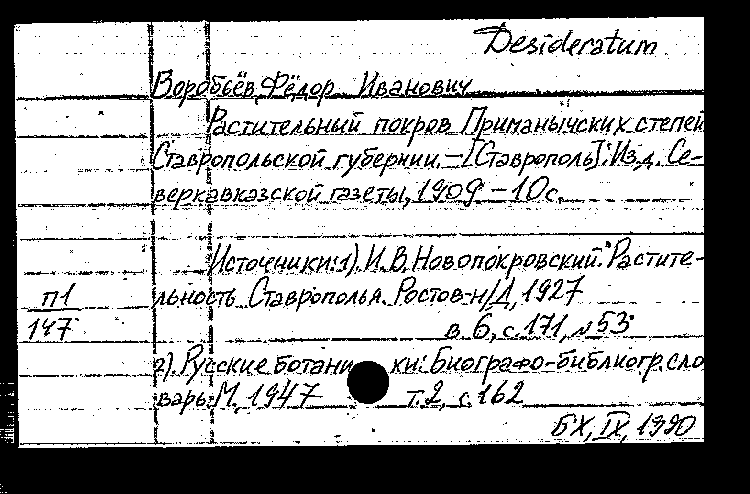 Desideratum
Воробьёв, Фёдор Иванович
Растительный покров Приманычских степей
Ставропольской губернии. – [Ставрополь]: Изд. Се-
веркавказской газеты, 1909 – 10 с.
Источники: 1). И.В. Новопокровский. Растите-
п1 льность Ставрополья. Ростов-н/Д, 1927
147 в. 6, с. 171, №53
2). Русские ботаники: Биографо-библиогр. сло
варь: М., 1947 т. 2, с. 162
БХ, IX, 1990